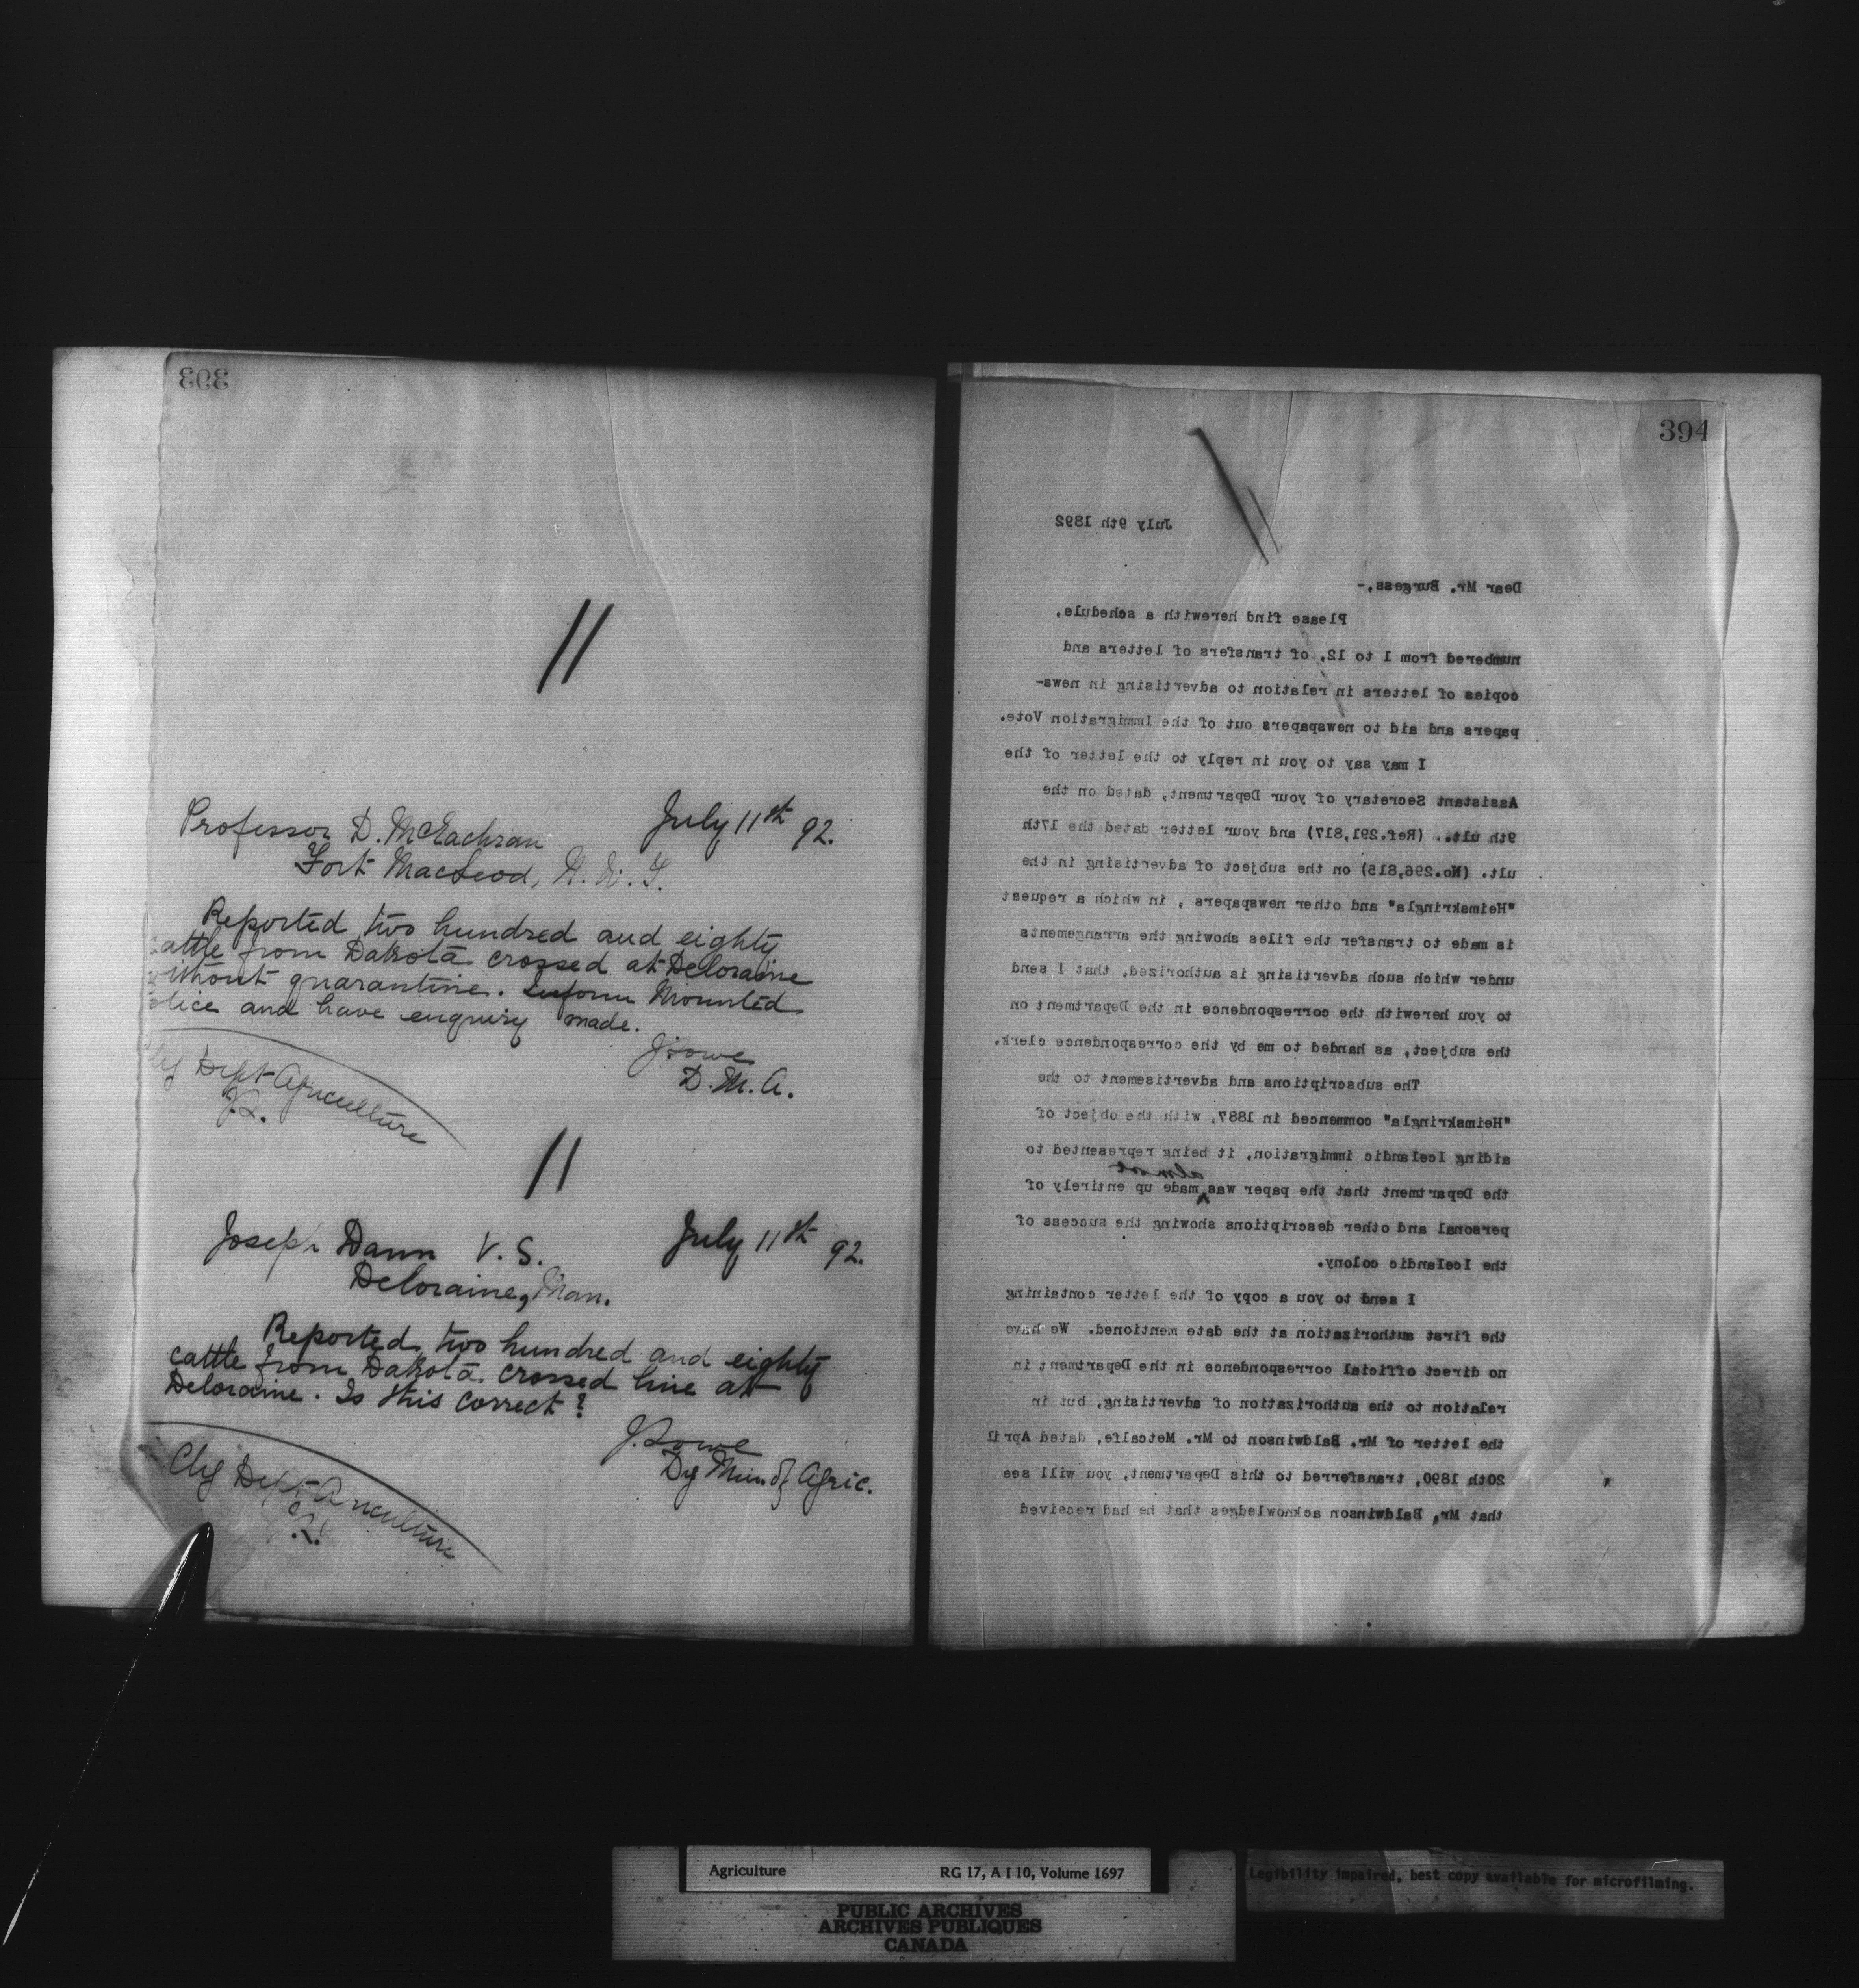 393
//
Professor D. McEachran July 11th 92.
Fort MacLeod, N. W. T.
Reported two hundred and eighty
cattle from Dakota crossed at Deloraine
without quarantine. Inform Mounted
olice and have enquiry made.
J Lowe
D. M. A.
Chg Dept Agriculture
J.L.
//
Joseph Dann V. S. July 11th 92.
Deloraine, Man.
Reported two hundred and eighty
cattle from Dakota crossed line at
Deloraine. Is this correct?
J. Lowe
Dy Min of Agric.
Chg Dept Agriculture
J.L.
394
July 9th 1892
Dear Mr. Burgess,-
Please find herewith a schedule,
numbered from 1 to 12, of transfers of letters and
copies of letters in relation to advertising in news-
papers and aid to newspapers out of the Immigration Vote.
I may say to you in reply to the letter of the
Assistant Secretary of your Department, dated on the
9th ult.. (Ref.291,817) and your letter dated the 17th
ult. (No.296,815) on the subject of advertising in the
"Heimskringla" and other newspapers , in which a request
is made to transfer the files showing the arrangements
under which such advertising is authorized, that I send
to you herewith the correspondence in the Department on
the subject, as handed to me by the correspondence clerk.
The subscriptions and advertisement to the
"Heimskringla" commenced in 1887, with the object of
aiding Icelandic immigration, it being represented to
almost
the Department that the paper was made up entirely of
personal and other descriptions showing the success of
the Icelandic colony.
I send to you a copy of the letter containing
the first authorization at the date mentioned. We have
no direct official correspondence in the Department in
relation to the authorization of advertising, but in
the letter of Mr. Baldwinson to Mr. Metcalfe, dated April
20th 1890, transferred to this Department, you will see
that Mr. Baldwinson acknowledges that he had received
Agriculture RG 17, A I 10, Volume 1697
PUBLIC ARCHIVES
ARCHIVES PUBLIQUES
CANADA
Legibility impaired, best copy available for microfilming.